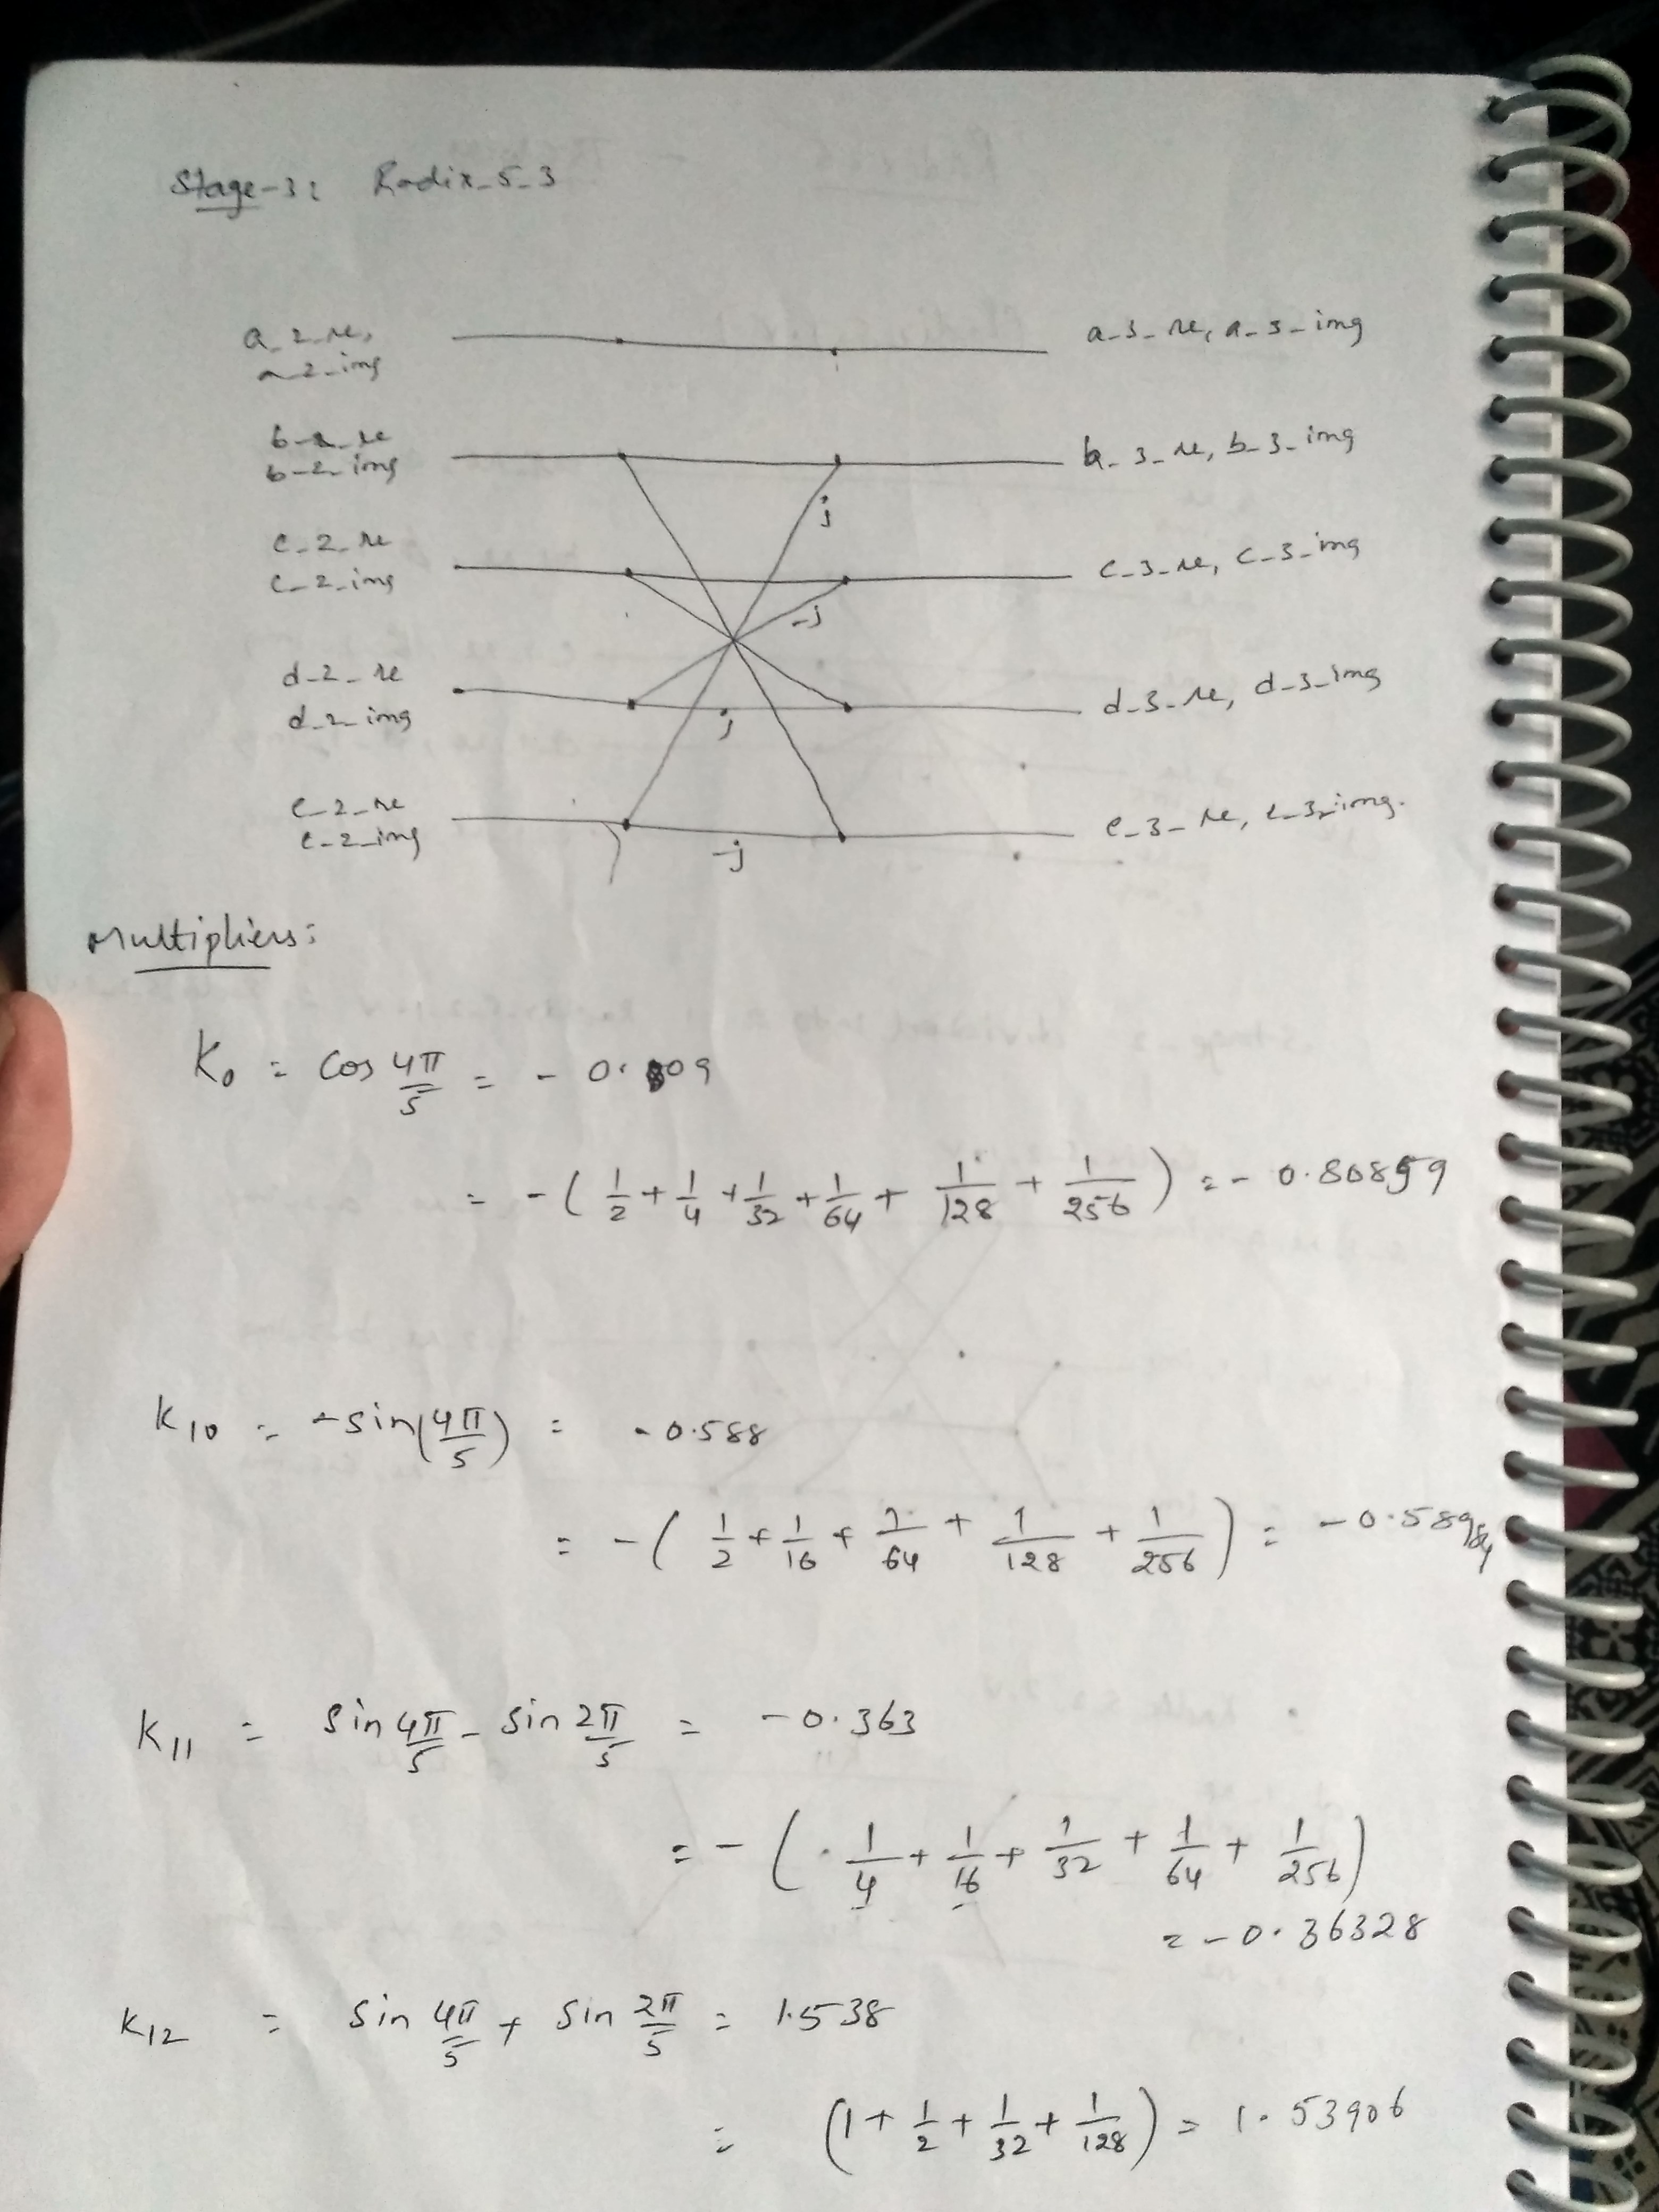 Stage-3: Radix_5_3
a_2_re, a_3_re, a_3_img
a_2_img
b_2_re
b_2_img b_3_re, b_3_img
j
c_2_re c_3_re, c_3_img
c_2_img
-j
d_2_re d_3_re, d_3_img
d_2_img j
e_2_re e_3_re, e_3_img.
e_2_img -j
Multipliers:
K₀ = cos 4π/5 = - 0.809
= - ( 1/2 + 1/4 + 1/32 + 1/64 + 1/128 + 1/256 ) = - 0.80859
K₁₀ = -sin(4π/5) = -0.588
= - ( 1/2 + 1/16 + 1/64 + 1/128 + 1/256 ) = -0.58984
K₁₁ = sin 4π/5 - sin 2π/5 = -0.363
= - ( 1/4 + 1/16 + 1/32 + 1/64 + 1/256 )
= -0.36328
K₁₂ = sin 4π/5 + sin 2π/5 = 1.538
= (1 + 1/2 + 1/32 + 1/128) = 1.53906